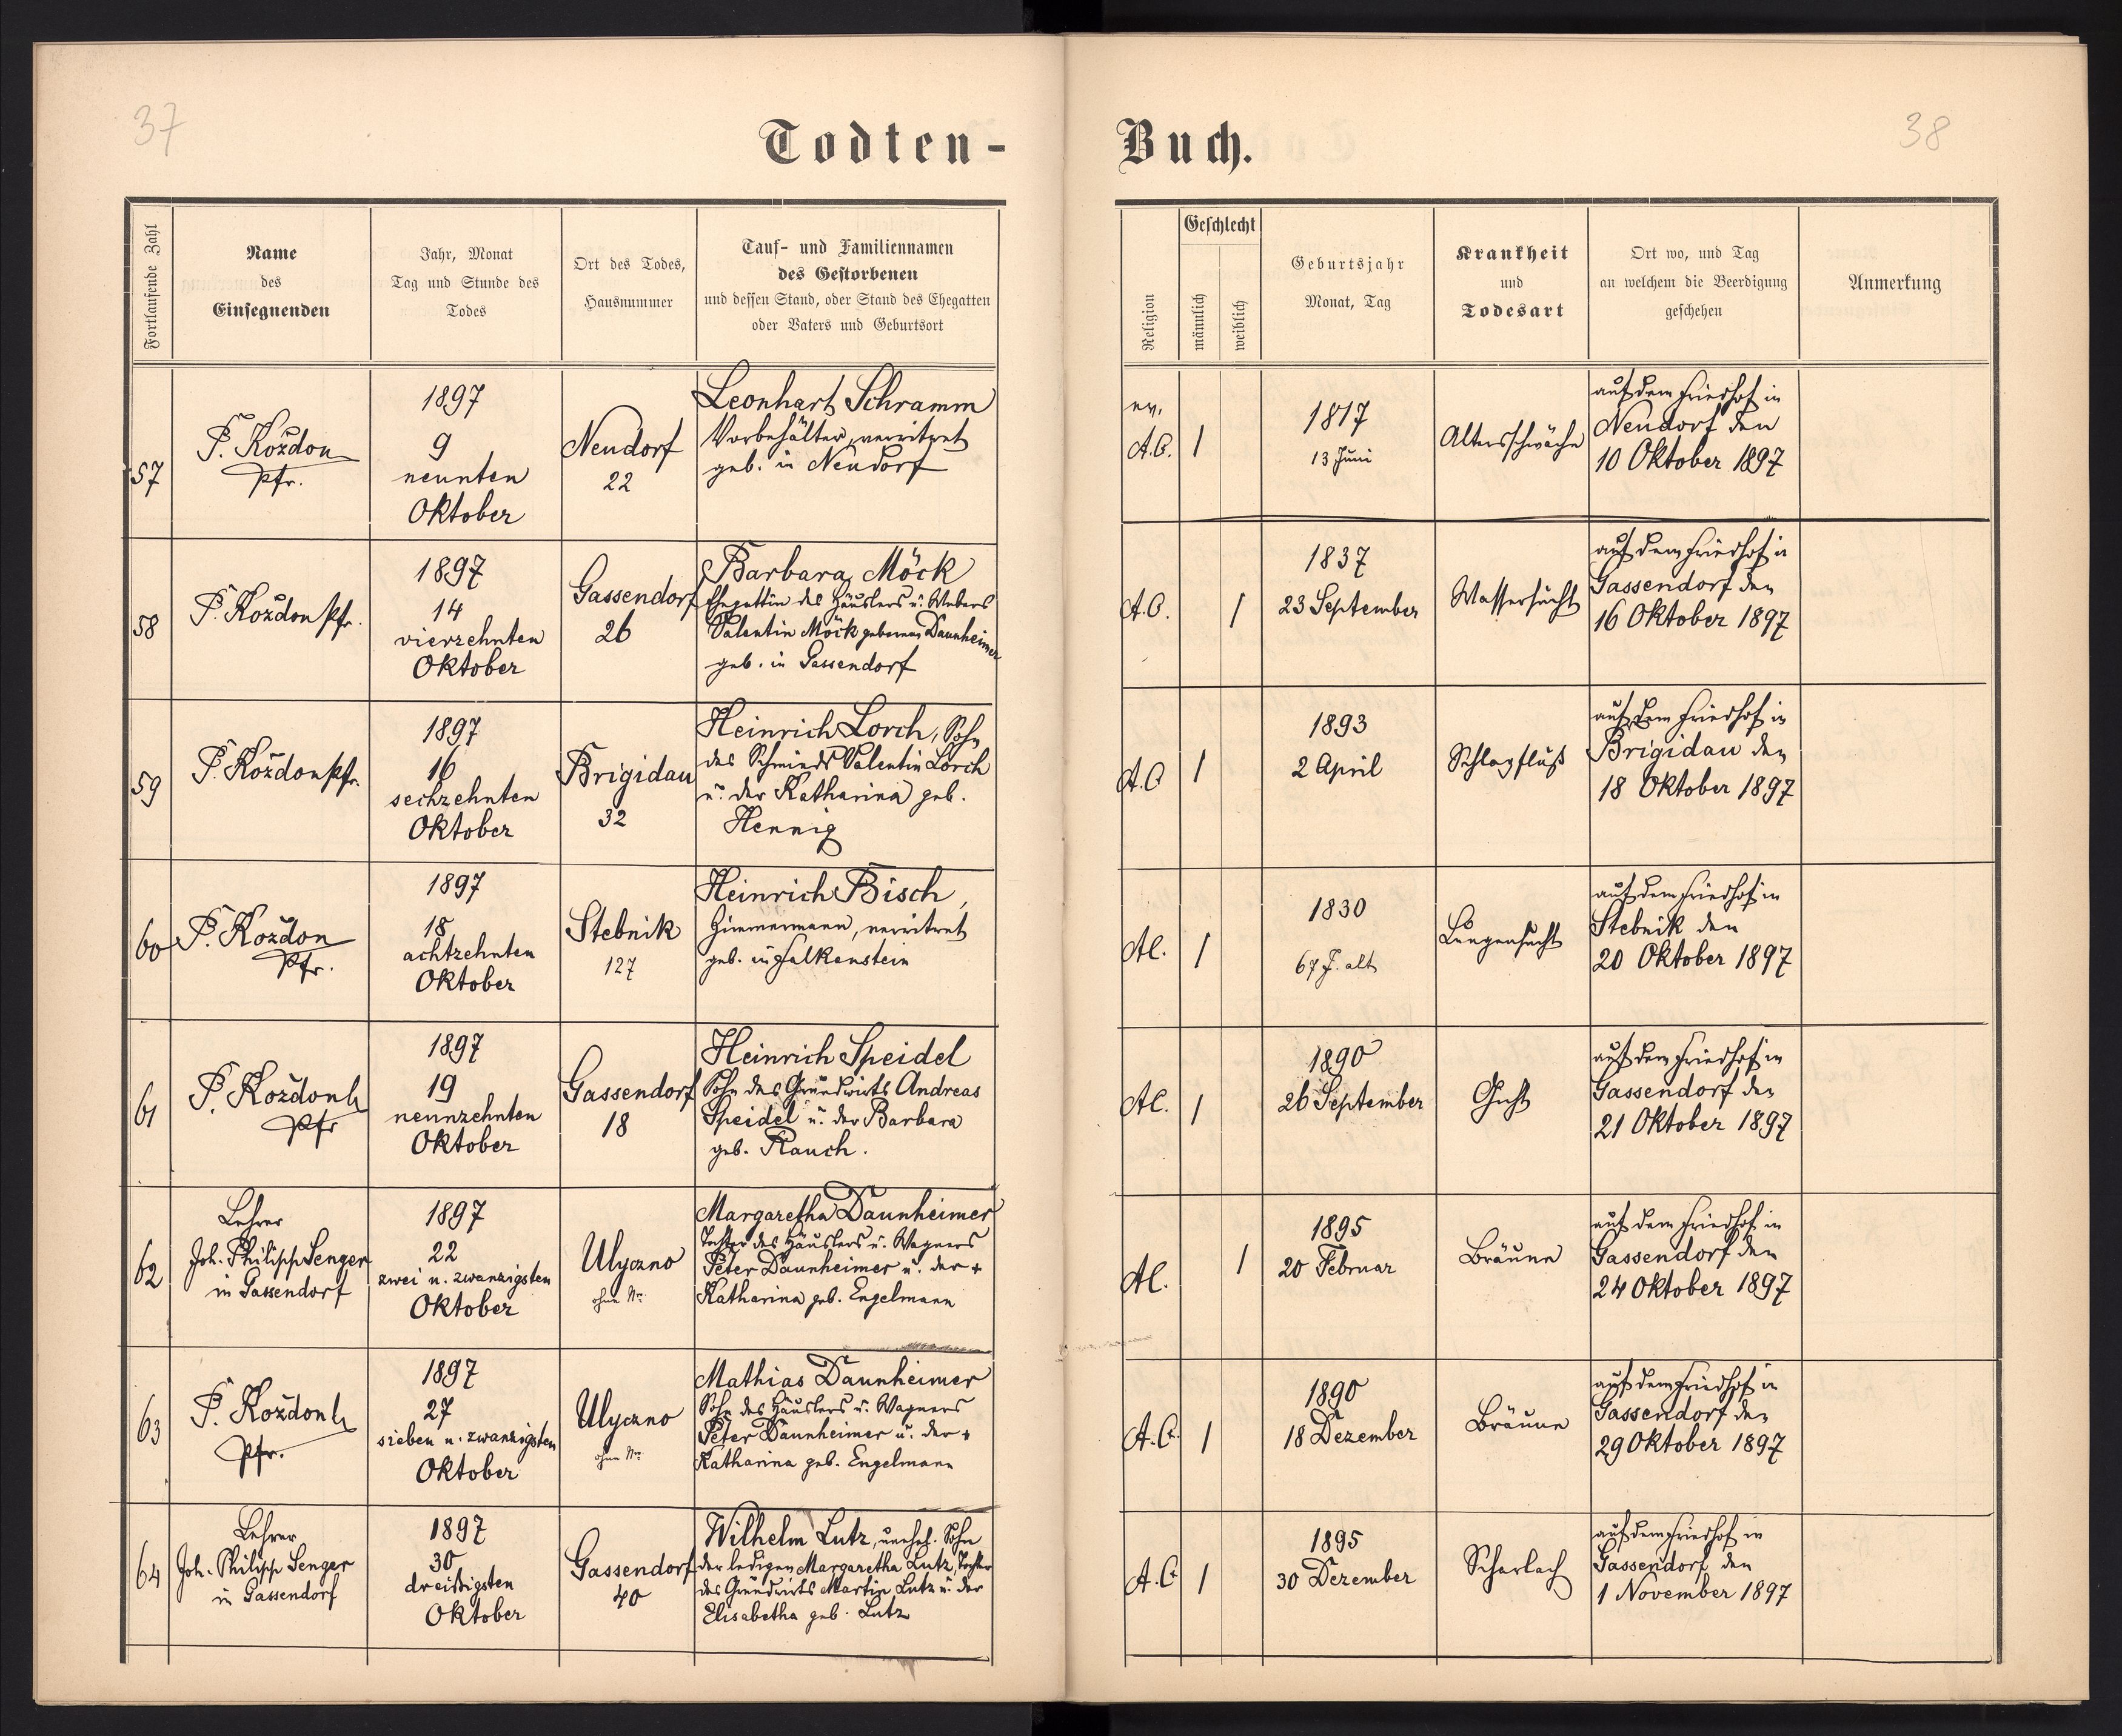 37
38
Todten-
Buch.
Fortlaufende Zahl
Name
des
Einsegnenden
Jahr, Monat
Tag und Stunde des
Todes
Ort des Todes,
Hausnummer
Tauf- und Familiennamen
des Gestorbenen
und dessen Stand, oder Stand des Ehegatten
oder Vaters und Geburtsort
Religion
Geschlecht
männlich
weiblich
Geburtsjahr
Monat, Tag
Krankheit
und
Todesart
Ort wo, und Tag
an welchem die Beerdigung
geschehen
Anmerkung
57
P. Koždon
Pfr.
1897
9
neunten
Oktober
Neudorf
22
Leonhart Schramm
Vorbehälter, verwitwet
geb. in Neudorf
ev.
A.C.
1
1817
13 Juni
Altersschwäche
auf dem Friedhof in
Neudorf den
10 Oktober 1897
58
P. Koždon Pfr.
1897
14
vierzehnten
Oktober
Gassendorf
26
Barbara Möck
Ehegattin des Häuslers u. Webers
Valentin Möck geborene Daunheimer
geb. in Gassendorf
A.C.
1
1837
23 September
Wassersucht
auf dem Friedhof in
Gassendorf den
16 Oktober 1897
59
P. Koždon Pfr.
1897
16
sechzehnten
Oktober
Brigidau
32
Heinrich Lorch, Sohn
des Schmieds Valentin Lorch
u. der Katharina geb.
Hennig
A.C
1
1893
2 April
Schlagfluß
auf dem Friedhof in
Brigidau den
18 Oktober 1897
60
P. Koždon
Pfr.
1897
18
achtzehnten
Oktober
Stebnik
127
Heinrich Bisch,
Zimmermann, verwitwet
geb. in Falkenstein
AC.
1
1830
67 J. alt
Lungensucht
auf dem Friedhof in
Stebnik den
20 Oktober 1897
61
P. Koždonh
Pfr
1897
19
neunzehnten
Oktober
Gassendorf
18
Heinrich Speidel
Sohn des Grundwirts Andreas
Speidel u. der Barbara
geb. Rauch.
AC.
1
1890
26 September
Gicht
auf dem Friedhof in
Gassendorf den
21 Oktober 1897
62
Lehrer
Joh. Philipp Senger
in Gassendorf
1897
22
zwei u. zwanzigsten
Oktober
Ulyczno
ohne Nro
Margaretha Daunheimer
Tochter des Häuslers u. Wagners
Peter Daunheimer u. der +
Katharina geb. Engelmann
AC.
1
1895
20 Februar
Bräune
auf dem Friedhof in
Gassendorf den
24 Oktober 1897
63
P. Koždonh
Pfr.
1897
27
sieben u. zwanzigsten
Oktober
Ulyczno
ohne Nro
Mathias Daunheimer
Sohn des Häuslers u. Wagners
Peter Daunheimer u. der +
Katharina geb. Engelmann
A.C.
1
1890
18 Dezember
Bräune
auf dem Friedhof in
Gassendorf den
29 Oktober 1897
64
Lehrer
Joh. Philipp Senger
in Gassendorf
1897
30
dreißigsten
Oktober
Gassendorf
40
Wilhelm Lutz, unehel. Sohn
der ledigen Margaretha Lutz, Tochter
des Grundwirts Martin Lutz u. der
Elisabetha geb. Lutz
A.C
1
1895
30 Dezember
Scharlach
auf dem Friedhof in
Gassendorf den
1 November 1897